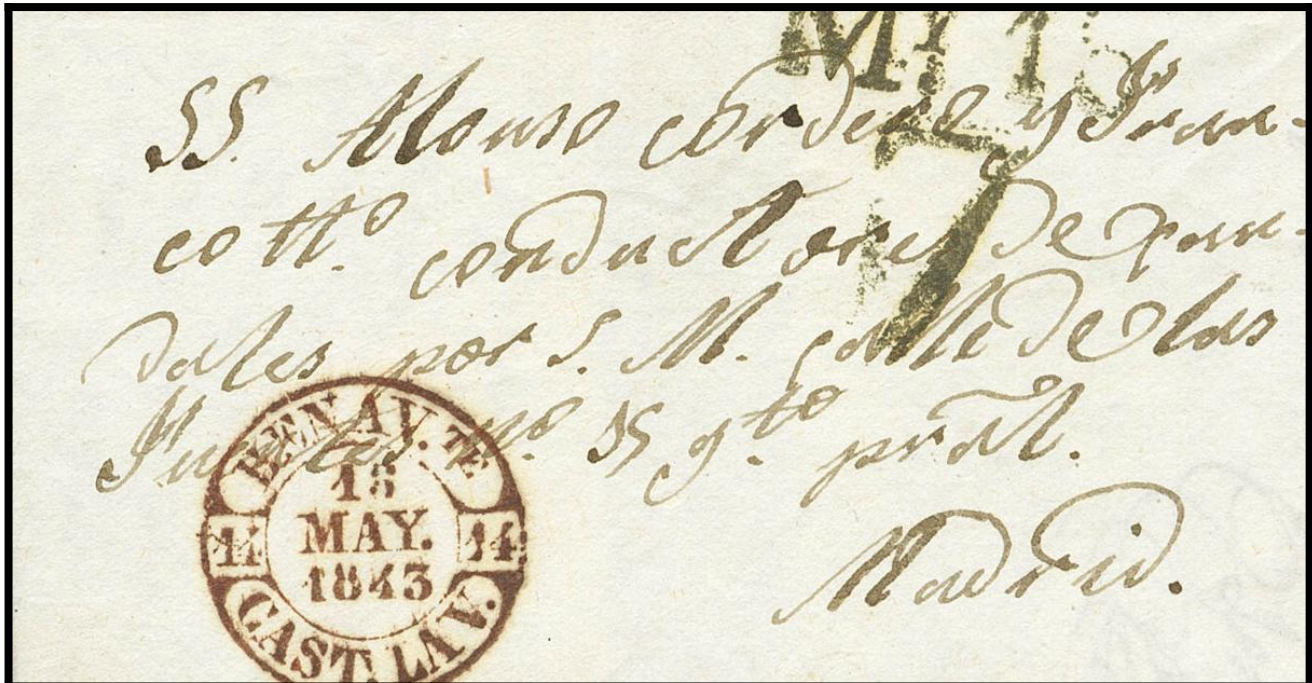 SS. Alonso cordero y Fran-
co tt.º conductores de cau-
dales por S. M. calle de las
Fuentes nº. 5 q.to pral.
Madrid.
7
BENAV.TE
15
MAY.
1843
14
14
CAST. LA V.